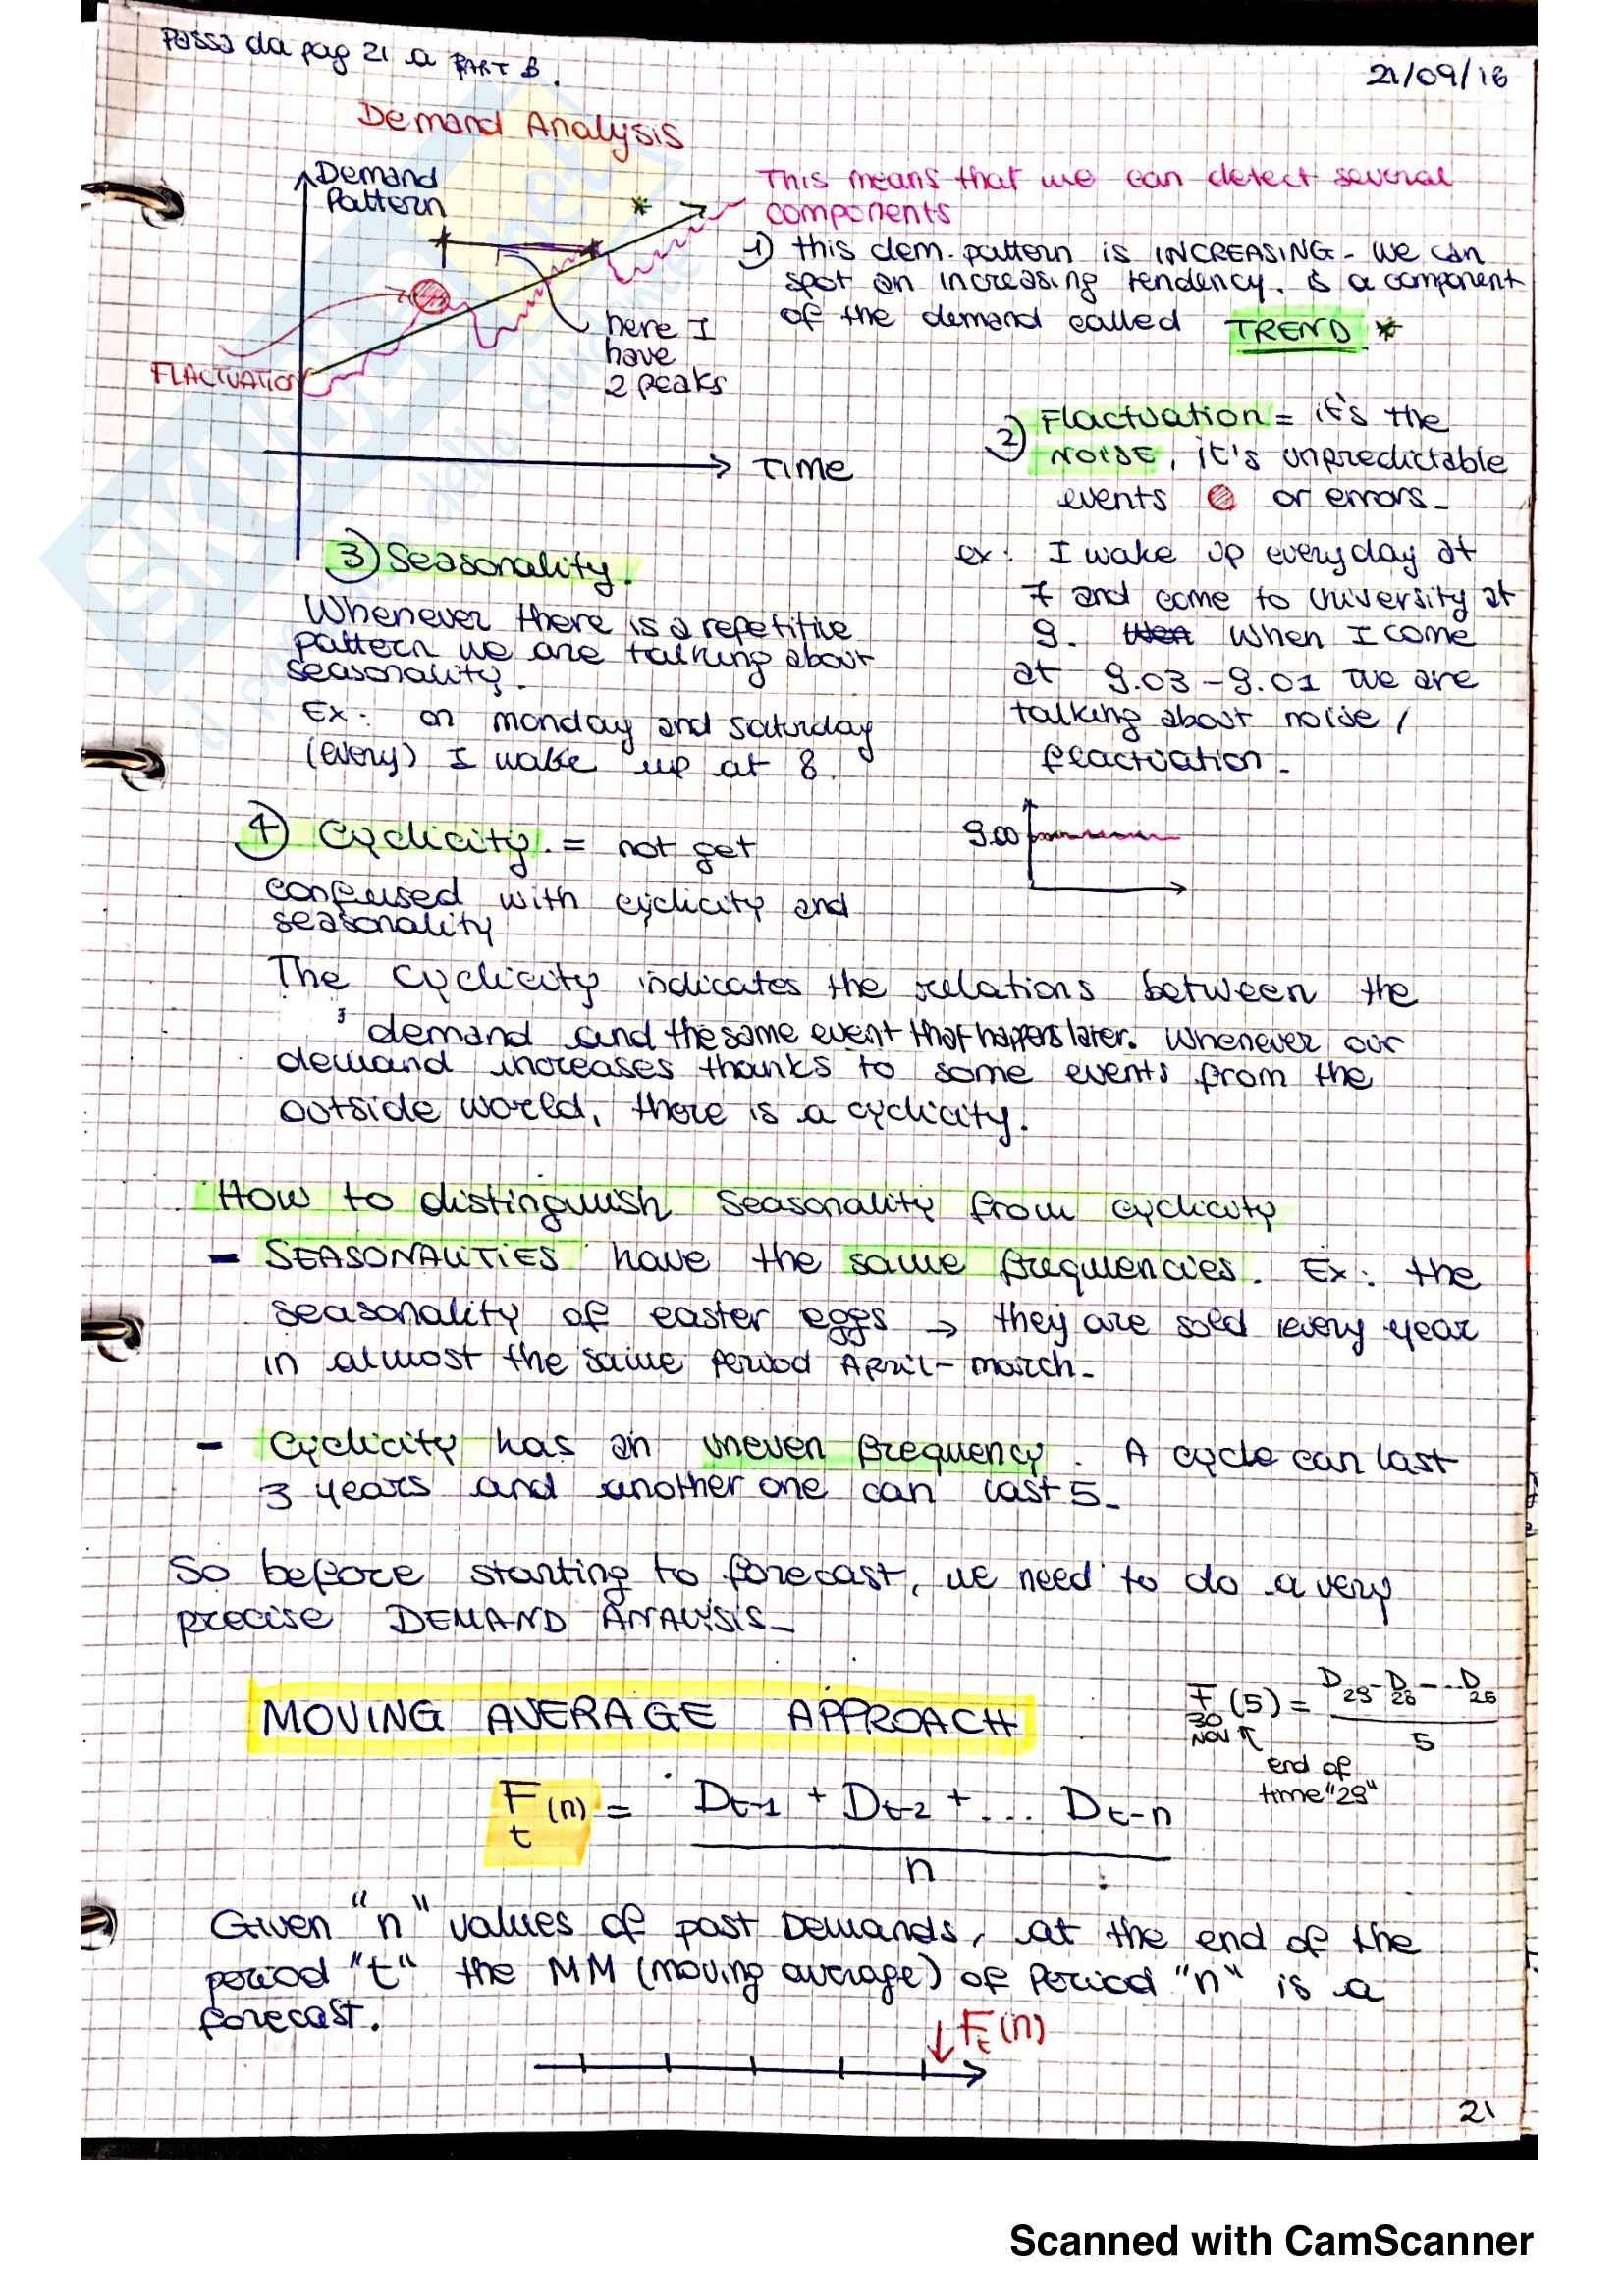 Passo da pag 21 a PART B.
21/09/16
Demand Analysis
Demand
Pattern
This means that we can detect several
components
1) this dem. pattern is INCREASING - we can
spot an increasing tendency. is a component
of the demand called TREND *
here I
have
2 peaks
FLACTUATION
TIME
2) Flactuation = it's the
NOISE, it's unpredictable
events or errors_
ex: I wake up everyday at
7 and come to university at
9. When I come
at 9.03 - 9.01 we are
talking about noise /
flactuation_
9.00
3) Seasonality.
Whenever there is a repetitive
pattern we are talking about
seasonality.
Ex: on monday and saturday
(every) I wake up at 8.
4) Cyclicity. = not get
confused with cyclicity and
seasonality
The cyclicity indicates the relations between the
demand and the same event that happens later. Whenever our
demand increases thanks to some events from the
outside world, there is a cyclicity.
How to distinguish seasonality from cyclicity
- SEASONALITIES have the same frequencies. Ex: the
seasonality of easter eggs → they are sold every year
in almost the same period April - march_
- Cyclicity has an uneven frequency. A cycle can last
3 years and another one can last 5_
So before starting to forecast, we need to do a very
precise DEMAND ANALYSIS_
MOVING AVERAGE APPROACH
F30 (5) = D29 - D28 - ... D26 / 5
NOV ↑
end of
time "29"
Ft (n) = Dt-1 + Dt-2 + ... Dt-n / n
Given "n" values of past Demands, at the end of the
period "t" the MM (moving average) of Period "n" is a
forecast.
↓ Ft (n)
21
Scanned with CamScanner